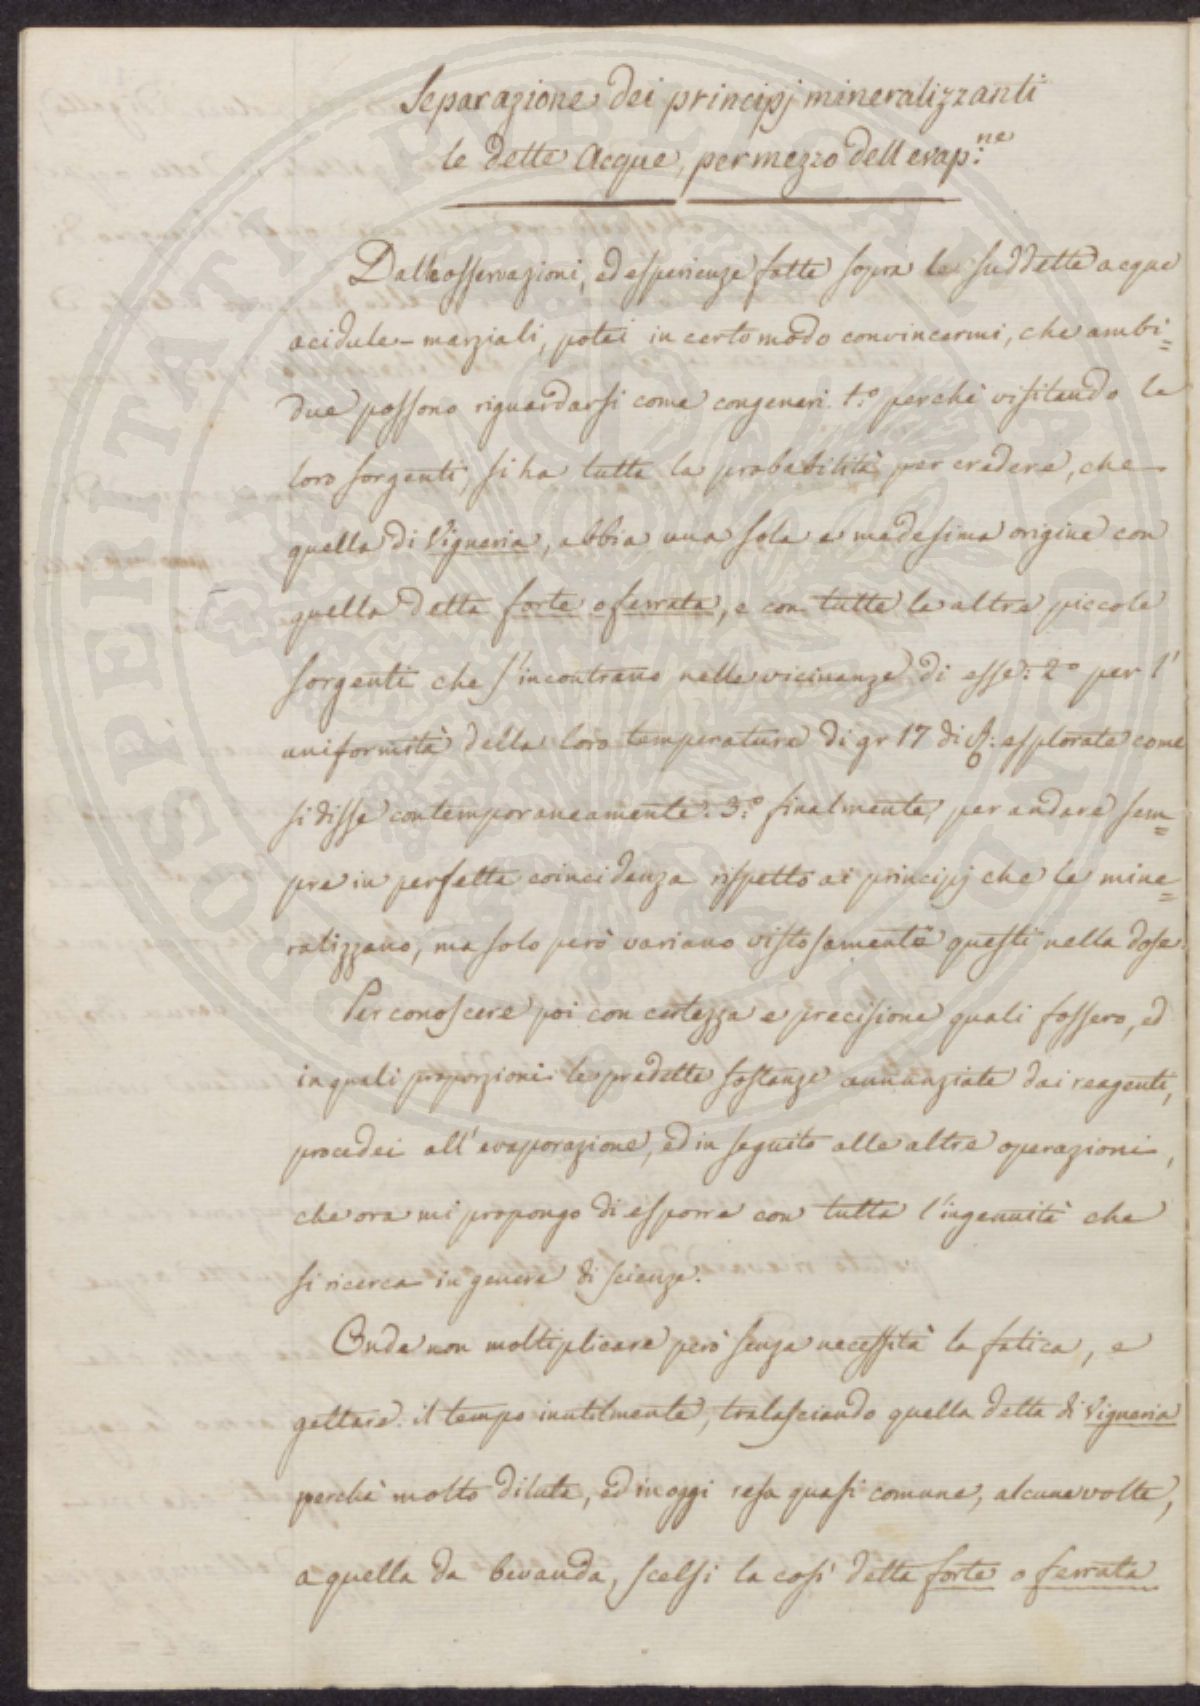 Separazione dei principj mineralizzanti
le dette Acque, per mezzo dell evap:ne
Dalle osservazioni, ed esperienze fatte sopra le suddette acque
acidule-marziali, potei in certo modo convincermi, che ambi=
due possono riguardarsi come congeneri. 1.o perchè visitando le
loro sorgenti, si ha tutta la probabilità per credere, che
quella di Vigneria, abbia una sola e medesima origine con
quella detta forte o ferrata, e con tutte le altre piccole
sorgenti che s'incontrano nelle vicinanze di esse: 2o per l'
uniformità della loro temperatura di gr 17 di R: esplorate come
si disse contemporaneamente: 3.o finalmente per andare sem=
pre in perfetta coincidenza rispetto ai principj che le mine=
ralizzano, ma solo però variano vistosamente questi nella dose.
Per conoscere poi con certezza e precisione quali fossero, ed
in quali proporzioni le predette sostanze annunziate dai reagenti,
procedei all'evaporazione, ed in seguito alle altre operazioni,
che ora mi propongo di esporre con tutta l'ingenuità che
si ricerca in genere di scienze.
Onde non moltiplicare però senza necessità la fatica, e
gettare il tempo inutilmente, tralasciando quella detta di Vigneria
perchè molto diluta, ed in oggi resa quasi comune, alcune volte,
a quella da bevanda, scelsi la così detta forte o ferrata
PROSPERITATI PUBLICAE AUGENDAE